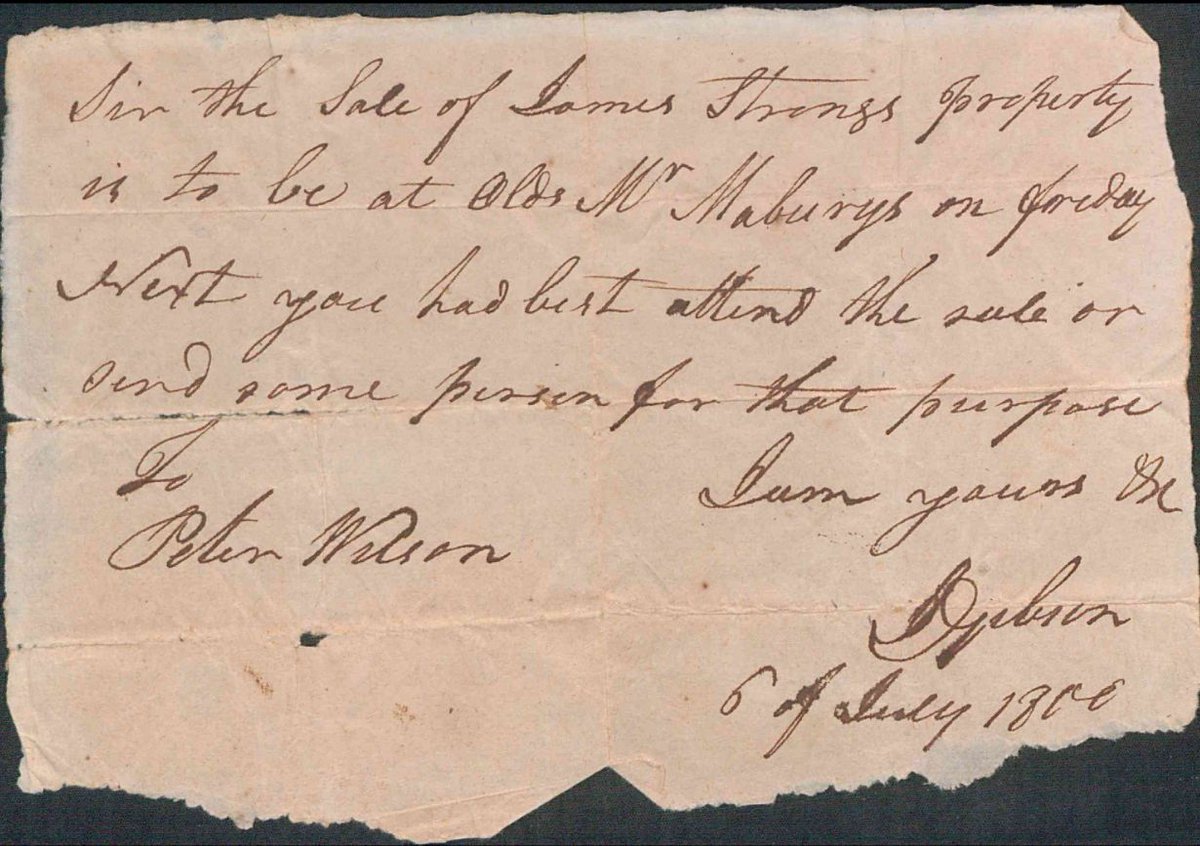 Sir the Sale of James Strongs property
is to be at Olds Mr Maburys on foreday
Next you had best attend the sale or
send some person for that purpose
To
I am yours &c
Peter Wilson
Gibson
6 of July 1800